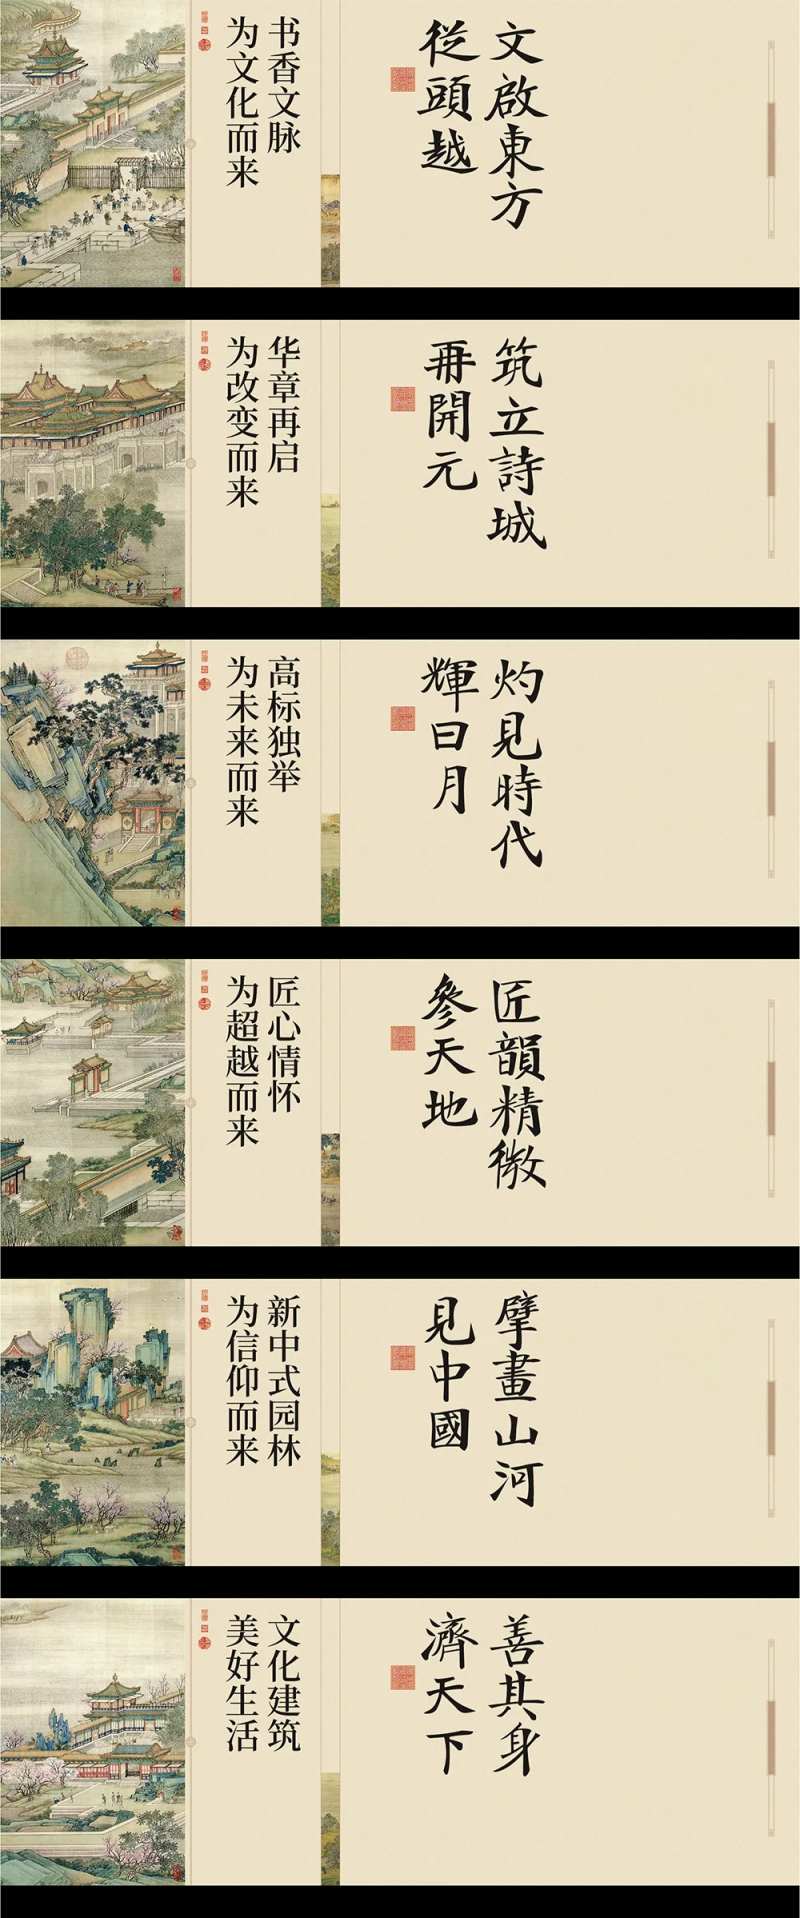 文啟東方
從頭越
书香文脉
为文化而来
筑立詩城
再開元
华章再启
为改变而来
灼見時代
輝日月
高标独举
为未来而来
匠韻精微
參天地
匠心情怀
为超越而来
擘畫山河
見中國
新中式园林
为信仰而来
善其身
濟天下
文化建筑
美好生活